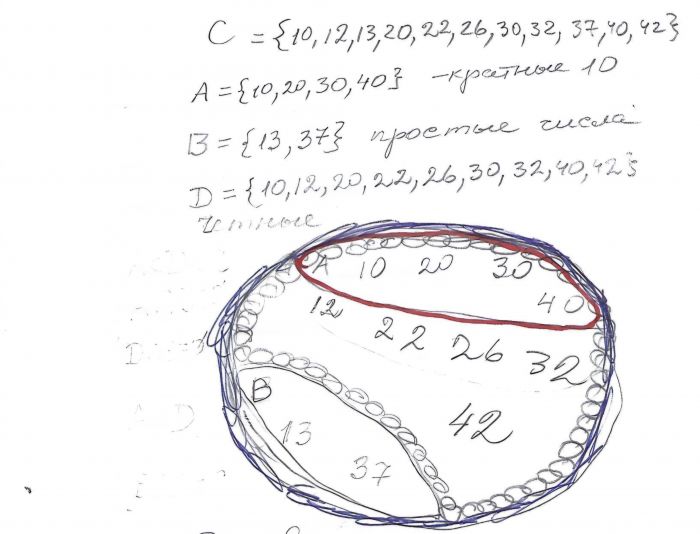 C = {10, 12, 13, 20, 22, 26, 30, 32, 37, 40, 42}
A = {10, 20, 30, 40} -кратные 10
B = {13, 37} простые числа
D = {10, 12, 20, 22, 26, 30, 32, 40, 42}
Чтные
A 10 20 30
40
12 22 26 32
B
42
13
37